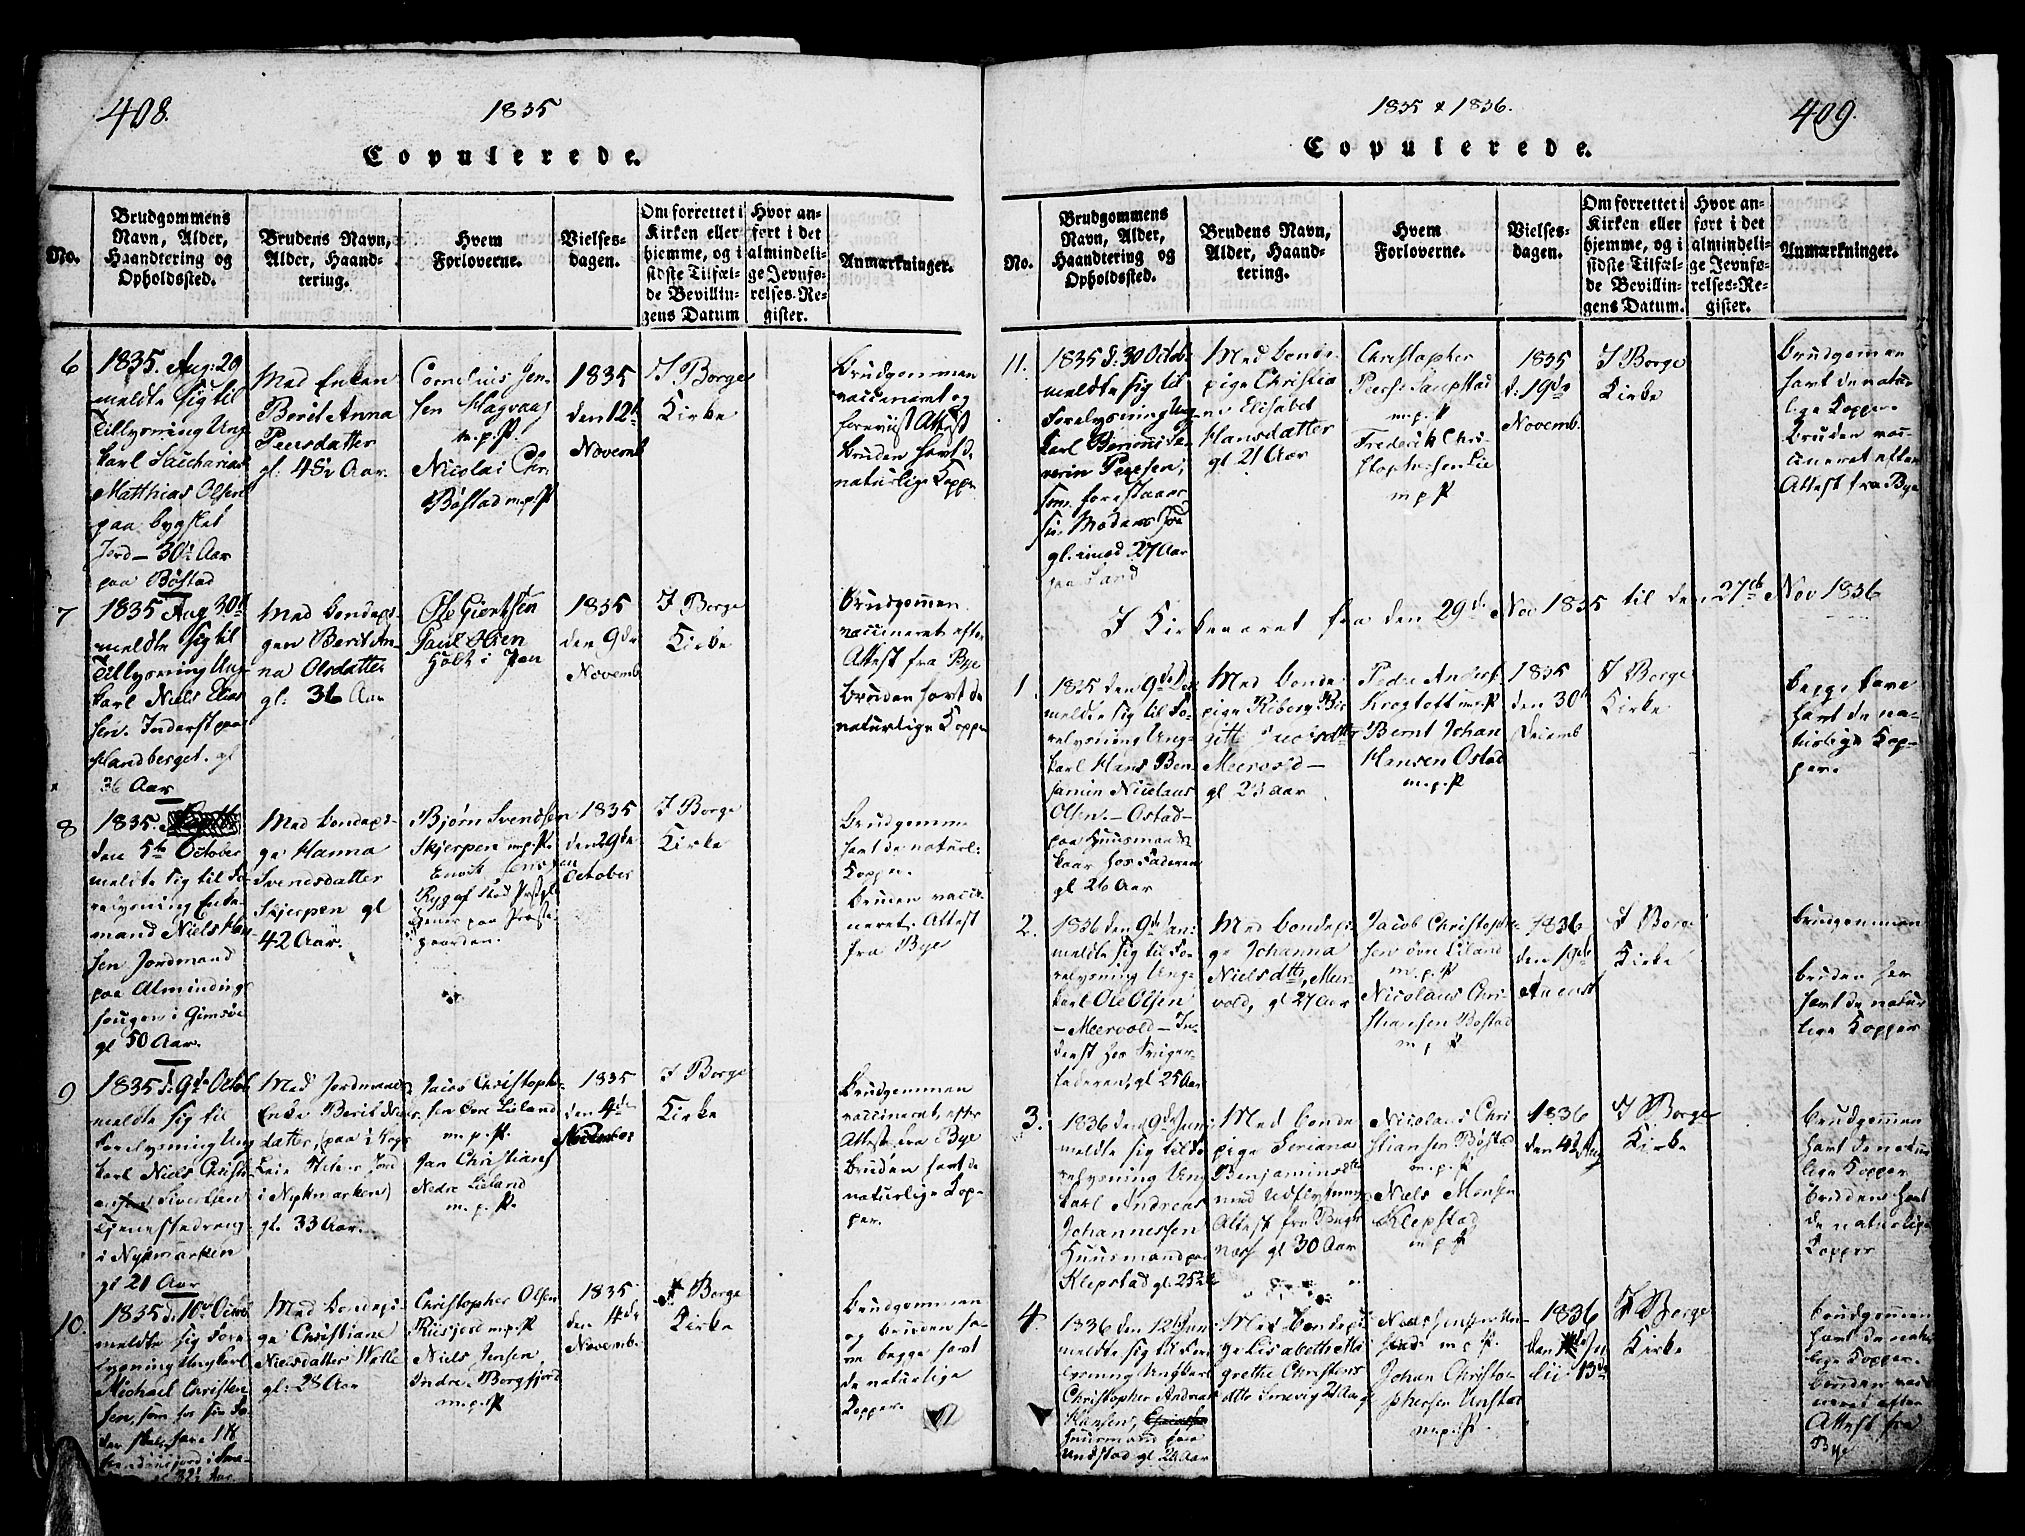 408.
1835
Copulerede.
No.
Brudgommens
Navn, Alder,
Haandtering og
Opholdssted.
Brudens Navn,
Alder, Haand-
tering.
Hvem
Forloverne.
Vielses-
dagen.
Om forrettet i
Kirken eller
hjemme, og i
sidste Tilfæl-
de Bevillin-
gens Datum
Hvor an-
ført i det
almindeli-
ge Jevnfø-
relses-Re-
gister.
Anmærkninger.
6
1835. Aug: 29
meldte sig til
Tillysning Ung-
karl Zacharias
Matthias Olsen
paa bygslet
Jord - 30½ Aar
paa Bøstad
Med Enken
Berit Anna
Peersdatter
gl. 48½ Aar.
Cornelius Jen-
sen Hagvaag
m.p.P.
Nicolai Chr.
Bøstad m.p.P
1835
den 12t
Novemb
I Borge
Kirke
Brudgommen
vaccineret og
foreviist Attest
Bruden havt de
naturlige Kopper
7
1835 Aug 30t
meldte sig til
Tillysning Ung-
karl Niels Elias
sen. Inderst paa
Handberget. gl
36 Aar
Med Bondepi-
gen Berit An-
na Olsdatter
gl: 36 Aar
Ole Giertsen
Paul Olsen
Holt i Pen
1835
den 9de
Novemb
I Borge
Kirke
Brudgommen
vaccineret efter
Attest fra Bye
Bruden havt de
naturlige Kopper
8
1835.
den 5te October
meldte sig til Fo-
relysning Enke-
mand Niels Han
sen Jordmand
paa Alminding
hougen i Gimsøe
gl 50 Aar.
Med Bondepi-
ge Hanna
Svendsdatter
Skjerpen gl
42 Aar.
Bjørn Svendsen
Skjerpen m.p.P.
Envik Jensen
Rygaf stad Præstgl
tjener paa Præste-
gaarden.
1835
den 29de
October
I Borge
Kirke
Brudgomme
havt de naturl:
Kopper.
Bruden vacci-
neret. Attest
fra Bye
9
1835 d: 9de Octob
meldte sig til
Forelysning Ung
karl Niels Christi-
Sivertsen
Tjenestedreng
i Nykmarken
gl 21 Aar
Med Jordmands
Enke Berit Niels
datter, paa
i Nykmarken
gl. 33 Aar.
Jacob Christoph-
sen Øvre Lieland
m.p.P.
Jan Christians
Nedre Lieland
m.p.P.
1835
den 4de
November
I Borge
Kirke
Brudgommen
vaccineret, efter
Attest fra Bye
Bruden havt de
naturlige Kop-
per.
10.
1835 d: 10de Octob
meldte sig Fore
lysning Ungkarl
Michael Christen
sen, som for sin Fa-
der
32½ Aar
Med Bondepi-
ge Christiane
Nielsdatter Wolle
gl: 28 Aar
Christopher Olsen
Riisjord m.p.P
Niels Jensen
Indre Borgfjord
m.p.P
1835
den 4de
Novemb.
I Borge
Kirke
Brudgommen
og Bruden ha-
ve begge havt
de naturlige
Kopper.
1835 & 1836.
409.
Copulerede.
No.
Brudgommens
Navn, Alder,
Haandtering og
Opholdssted.
Brudens Navn,
Alder, Haand-
tering.
Hvem
Forloverne.
Vielses-
dagen.
Om forrettet i
Kirken eller
hjemme, og i
sidste Tilfæl-
de Bevillin-
gens Datum.
Hvor an-
ført i det
almindeli-
ge Jevnfø-
relses-Re-
gister.
Anmærkninger.
11.
1835 d: 30 Octob:
meldte sig til
Forelysning Ung
karl Benoni Se-
verin Peersen,
som forestaaer
sin Moders
gl. imod 27 Aar
paa Sand
Med Bonde
pige Christia
ne Elisabet
Hansdatter
gl 21 Aar
Christopher
Peers:
m.p.P
Frederik Chri-
stophersen Lie
m.p.P
1835
d: 19de
Novemb.
I Borge
Kirke
Brudgommen
havt de natur-
lige Kopper
Bruden vac-
cineret efter
Attest fra Bye
I Kirkeaaret fra den 29de Nov 1835 til den 27de Nov 1836
1.
1835 den 9de Dec
meldte sig til Fo-
relysning Ung-
karl Hans Ben-
jamin Nicolaus
Olsen - Ostad -
paa Huusmands
kaar hos Faderen
gl 26 Aar
Med Bonde
pige Riberg Bir
gitte Jacobsdtr
Meervold -
gl 23 Aar
Peder Anders.
Krogtoft m.p.P
Bernt Johan
Hansen Ostad
m.p.P
1835
den 30t
Decemb
I Borge
Kirke
Begge have
havt de na-
turlige Kop-
per.
2.
1836 den 9de Jan:
meldte sig til Fo-
relysning Ung-
karl Ole Olsen
- Meervold - In-
derst hos Sviger-
faderen, gl 25 Aar
Med Bondepi-
ge Johanna
Nielsdtr, Meer
vold, gl 27 Aar
Jacob Christoph-
sen øvr Liland
m.p.P
Nicolaus Chri-
stiansen Bøstad
m.p.P
1836
den 19de
August
I Borge
Kirke
Brudgommen
Bruden har
havt de natur
lige Kopper
3.
1836 den 9de Jun:
meldte sig til Fo
relysning Ung
karl Andreas
Johannessen
Huusmand paa
Klepstad gl. 25½
Med Bonde
pige Seriana
Benjaminsdtr
med Udflytnings
Attest fra
gl 30 Aar
Nicolaus Chri
stiansen Bøstad
m.p.P.
Niels Monsen
Klepstad
m.p.P
1836
den 42 Aug
I Borge
Kirke
Brudgommen
havt de natur
lige Kopper
Bruden havt
de naturlige
Kopper
4
1836 den 12te Jun:
meldte sig til Fore
lysning Ungkarl
Christopher Andreas
Hansen,
Huusmand paa
Undstad gl 26 Aar
Med Bondepi
ge Lisabeth Mar
grethe Christens
datter
m.p.P.
Johan Christo-
phersen Unstad
m.p.P.
1836
den Ju-
lii 13de
I Borge
Kirke
Brudgommen
havt de natur
lige Kopper.
Bruden vacci
neret efter
Attest fra
Bye